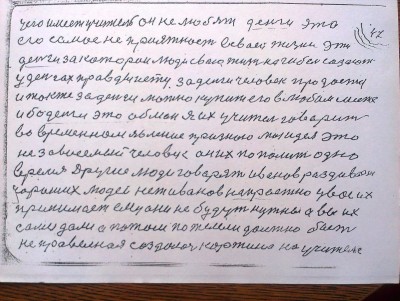 чего имеет учитель он не любят денги это
его самое не приятност всваеи жизни эти
денги за котории люди сваю жизн
уденгах правди нету заденги человек продости
и также заденги можно купит его влюбом месте
и во денги это обман я их учител говарит
во временном явление признаю моя идея это
не зависемый человек он их пополит одно
время другие люди говарят ивенов раздивал
хороших людеи нет иванов напростно увас их
принимает ему они не будут нужны а вы их
сами дали а потом пожелели должно быт
не правелная создалоч картина научителе
47